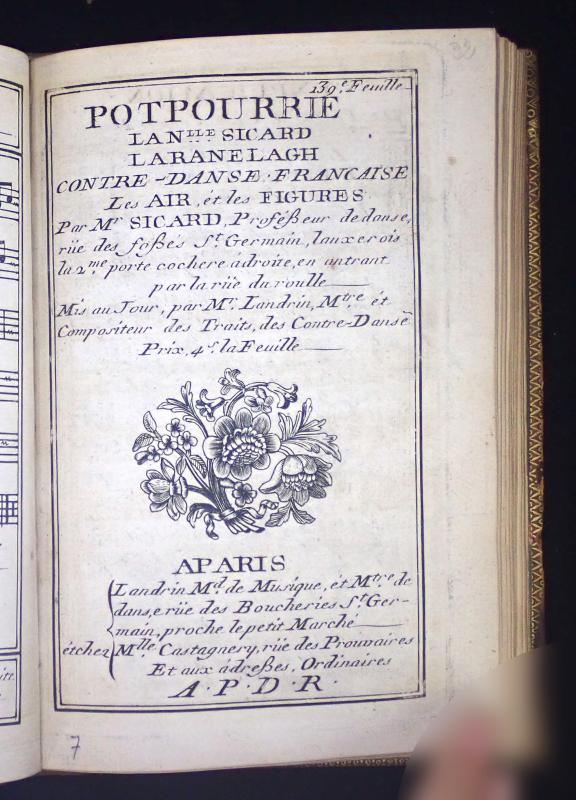 33
139.e Feuille
POTPOURRIE
LAN.LLE SICARD
LARANELAGH
CONTRE-DANSE FRANCAISE
Les AIR, ét les FIGURES
Par M.r SICARD, Proféßeur de danse,
rüe des foßés S.t Germain, lauxerois
la 2.me porte cochere ádroite, en antrant
par la rüe du roulle
Mis au Jour, par M.r Landrin, M.tre ét
Compositeur des Traits, des Contre-Danse
Prix, 4.s la Feuille
APARIS
Landrin M.d de Musique, ét M.tre de
dans,e rüe des Boucheries S.t Ger-
main, proche le petit Marché
étchez M.lle Castagnery, rüe des Prouvaires
Et aux ádreßes, Ordinaires
A·P·D·R·
7